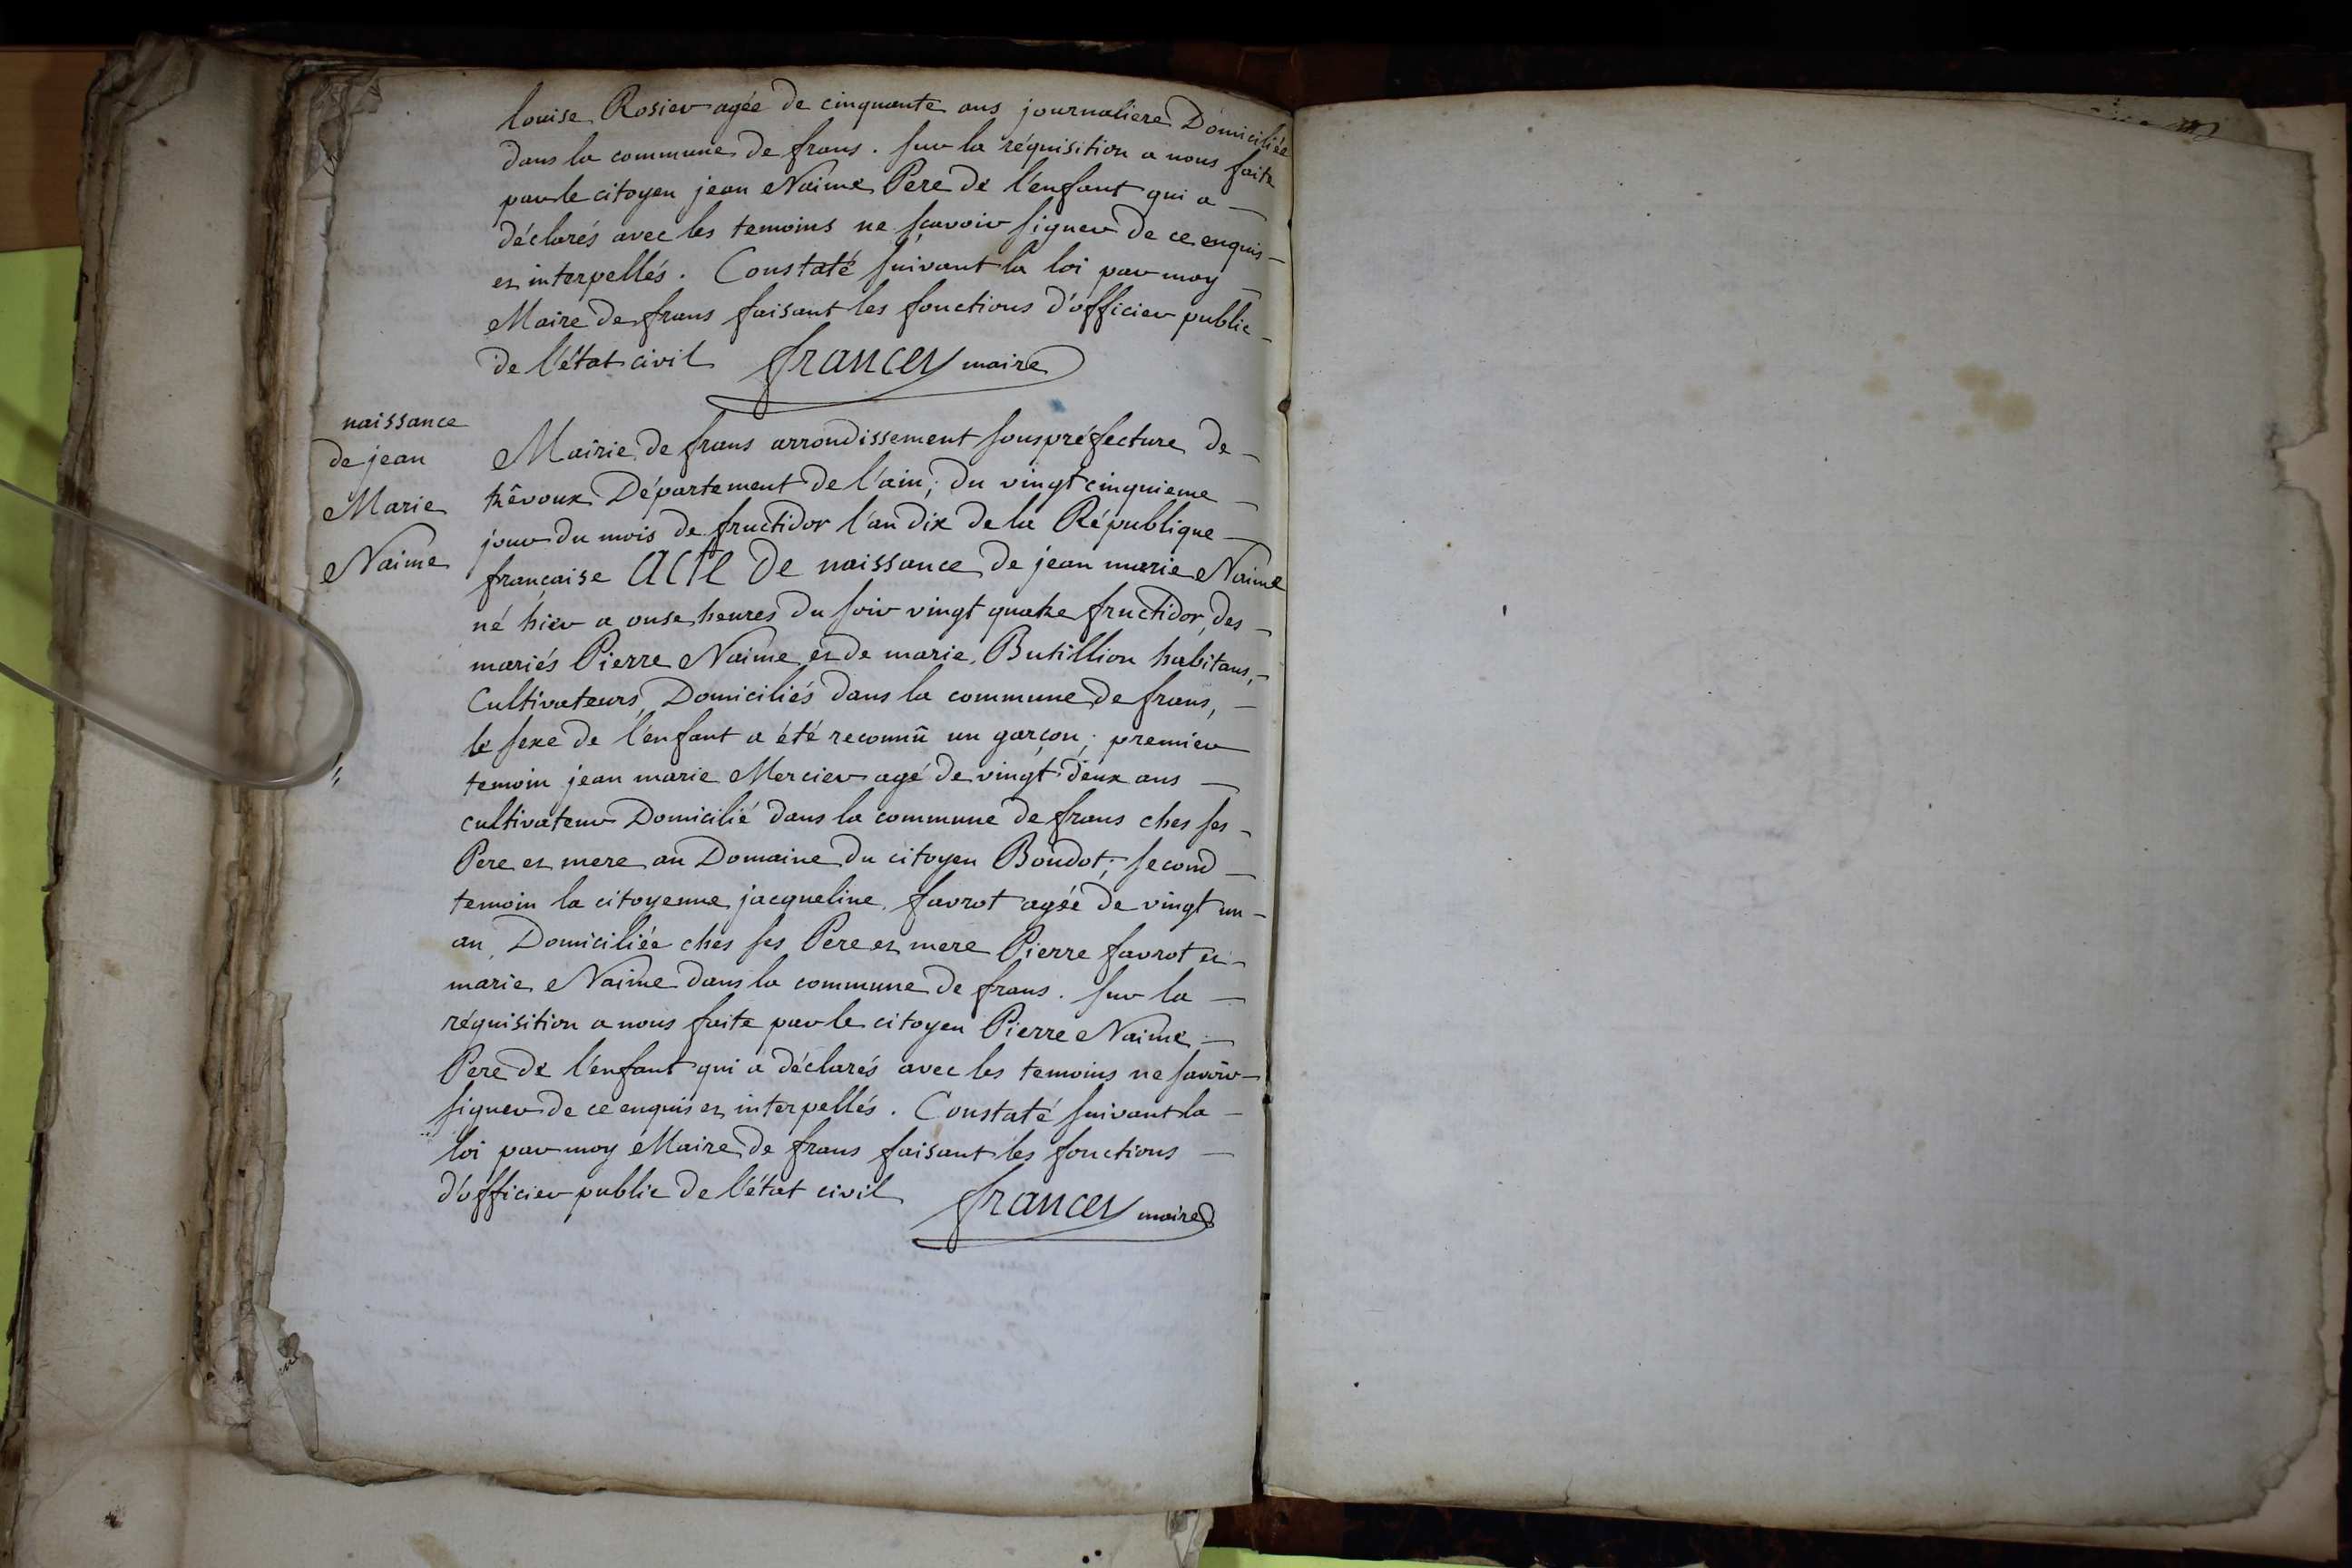 louise Rosier agée de cinquante ans journaliere Domiciliée
dans la commune de frans. sur la réquisition a nous faite
par le citoyen jean Naime Pere de l'enfant qui a
déclarés avec les temoins ne sçavoir signer de ce enquis
et interpellés. Constaté suivant la loi par moy
Maire de frans faisant les fonctions d'officier public
de l'état civil francey maire
naissance
de jean
Marie
Naime
Mairie de frans arrondissement souspréfecture de
trêvoux Département de l'ain; du vingt cinquieme
jour du mois de fructidor l'an dix de la République
française Acte De naissance de jean marie Naime
né hier a onse heures du soir vingt quatre fructidor, des
mariés Pierre Naime et de marie Butillion habitans,
Cultivateurs, Domiciliés dans la commune de frans,
le sexe de l'enfant a été reconnû un garçon; premier
temoin jean marie Mercier agé de vingt deux ans
cultivateur Domicilié dans la commune de frans ches ses
Pere et mere au Domaine du citoyen Boudot; second
temoin la citoyenne jacqueline favrot agée de vingt un
an, Domiciliée ches ses Pere et mere Pierre favrot et
marie Naime dans la commune de frans. sur la
réquisition a nous faite par le citoyen Pierre Naime
Pere de l'enfant qui a déclarés avec les temoins ne savoir
signer de ce enquis et interpellés. Constaté suivant la
loi par moy Maire de frans faisant les fonctions
d'officier public de l'état civil francey maire